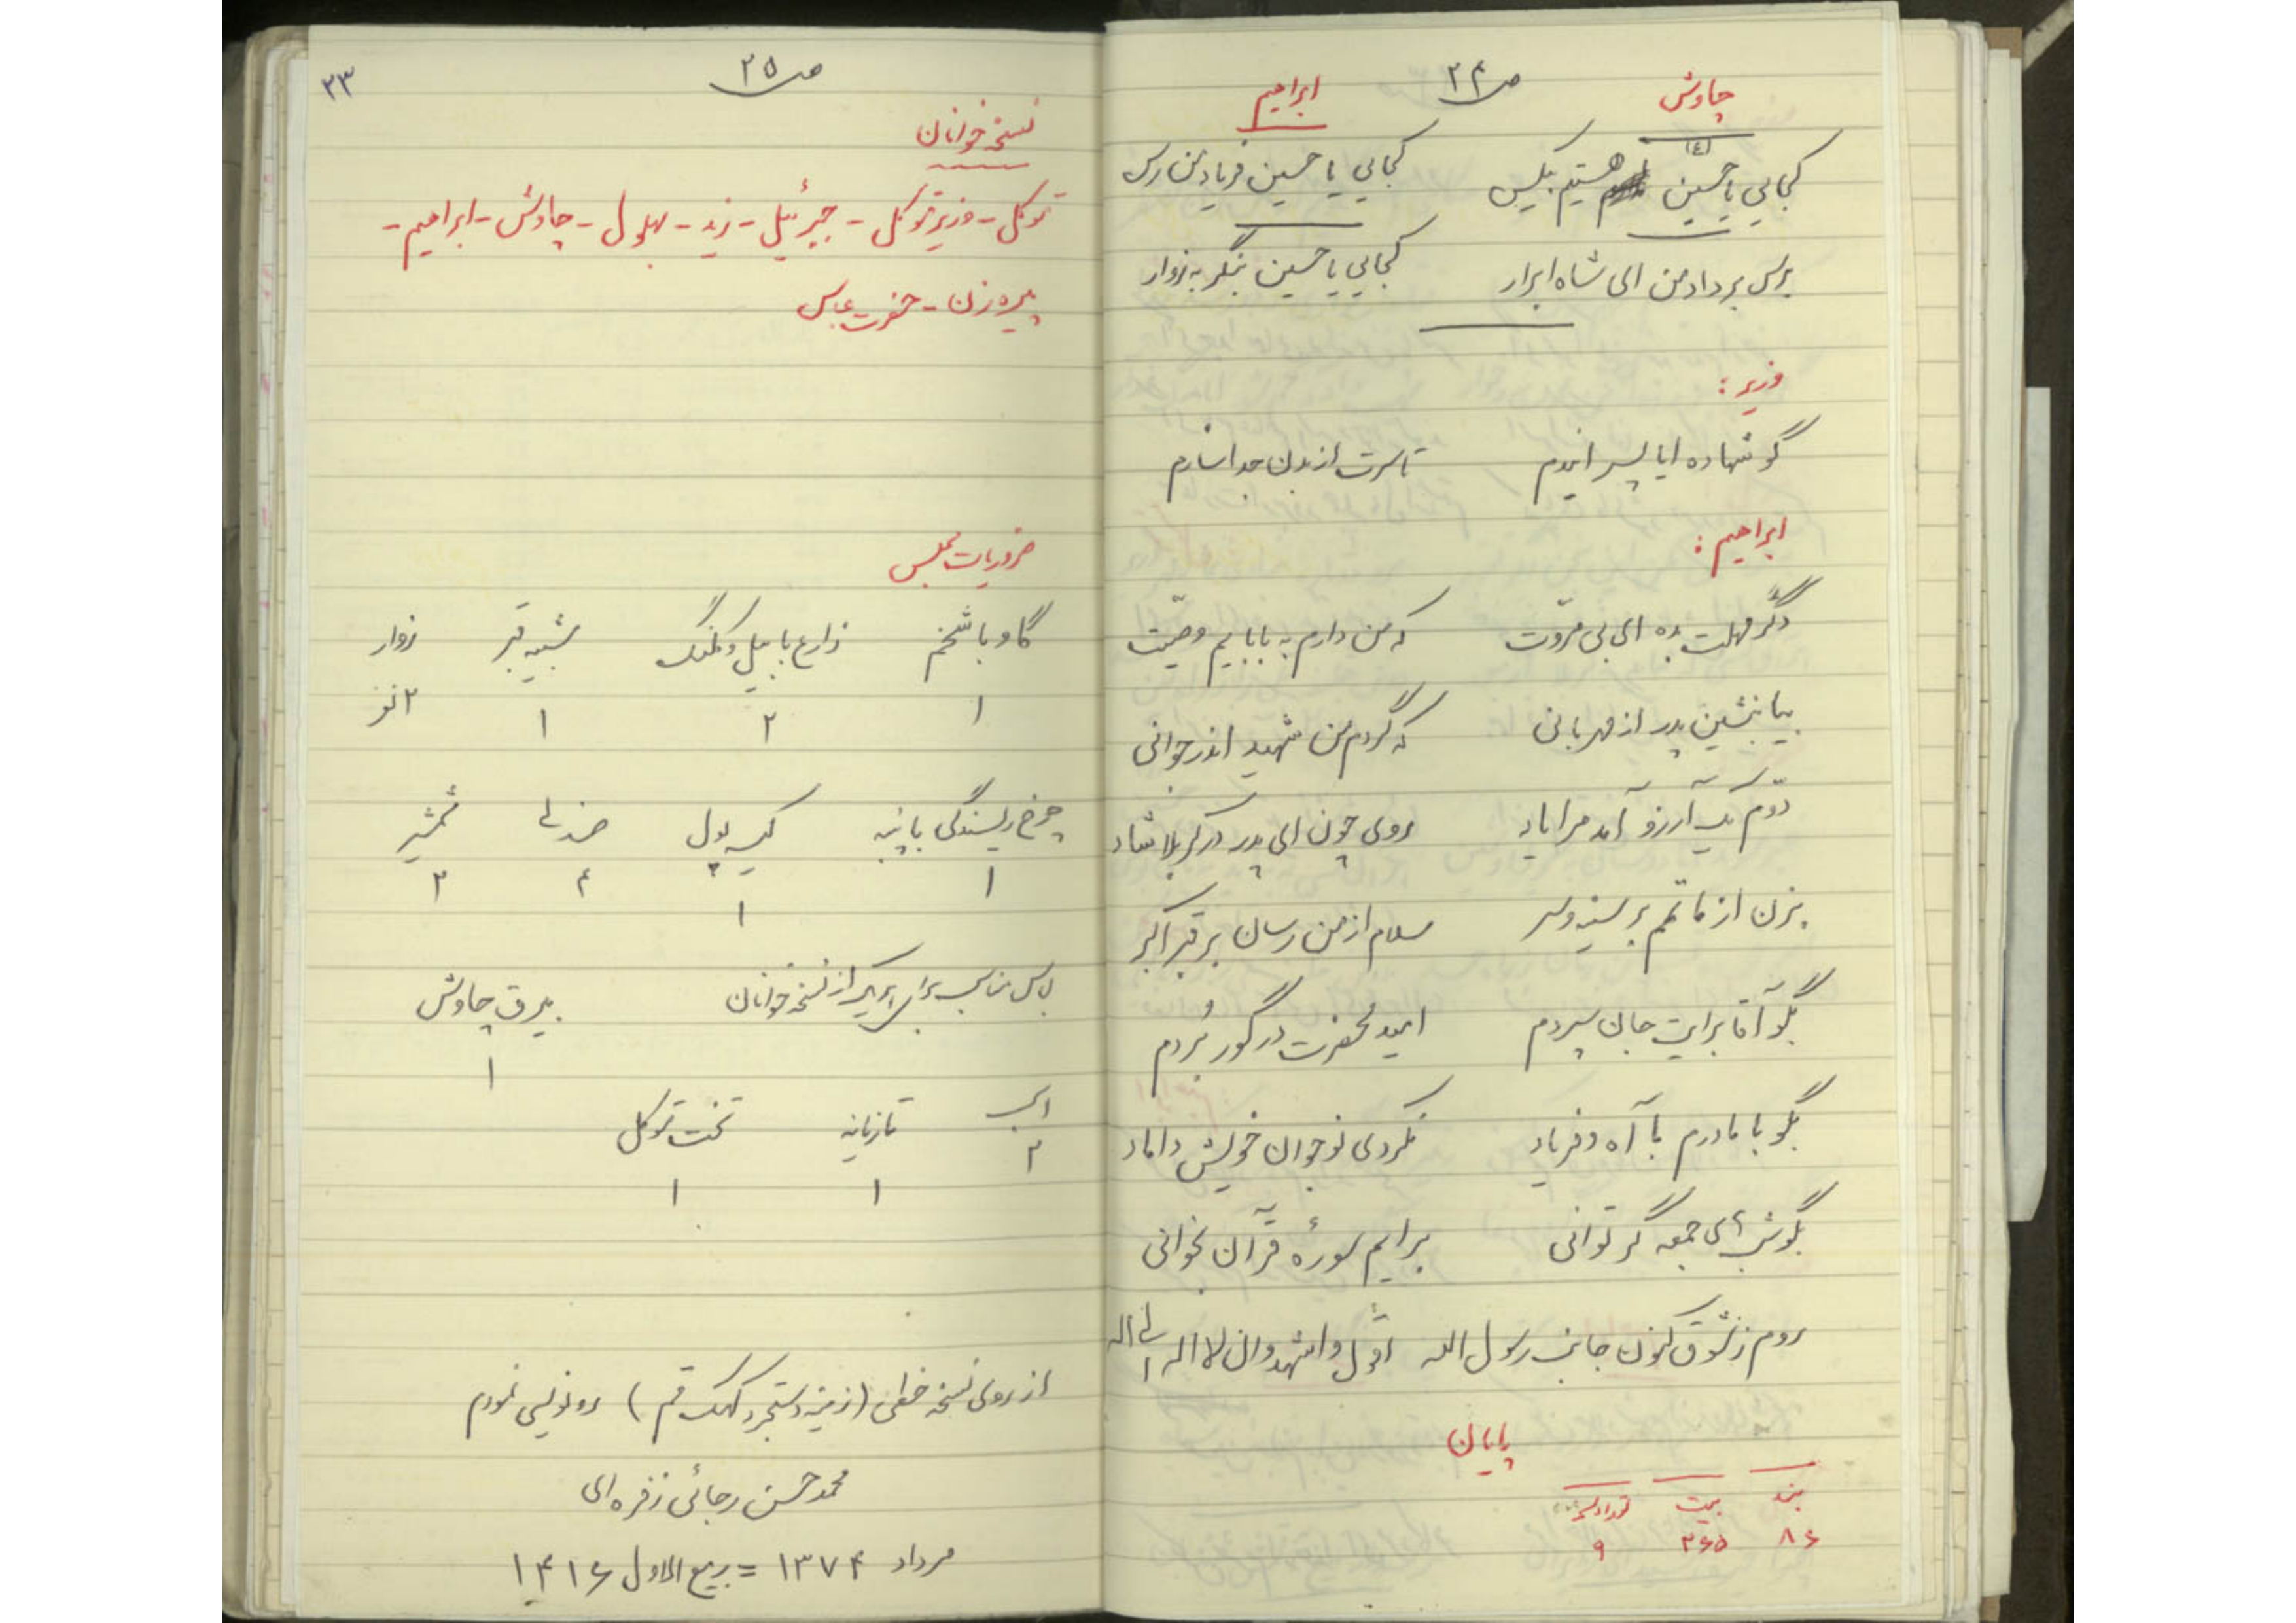 ص ۲۴
چاوش
ابراهیم
کجایی یا حسین هستیم بیکس کجایی یا حسین فریاد من رس
برس بر داد من ای شاه ابرار کجایی یا حسین بنگر به زوار
وزیر :
گو شهاده ایا پسر ایندم تا سرت از بدن جدا سازم
ابراهیم :
دگر مهلت بده ای بی مروّت که من دارم به بابایم وصیّت
بیا بنشین پدر از مهربانی که گردم من شهید اندر جوانی
دوّم یک آرزو آمد مرا یاد روی چون ای پدر در کربلا شاد
بزن از ماتمم بر سینه و سر سلام از من رسان بر قبر اکبر
بگو آقا برایت جان سپردم امید محضرت در گور بُردم
بگو با مادرم با آه و فریاد نکردی نوجوان خویش داماد
بگو شبهای جمعه گر توانی برایم سورهٔ قرآن بخوانی
روم ز شوق کنون جانب رسول الله اقول و اشهد و ان لا اله الی اله
پایان
بند بیت تعداد نسخه
۸۶ ۳۶۵ ۹
ص ۲۵
۲۳
نسخه خوانان
توکل - وزیر توکل - جبرئیل - زید - بهلول - چاوش - ابراهیم -
پیره زن - حضرت عباس
ضروریات مجلس
گاو با شخم زارع با بیل و کلنگ شبیه قبر زوار
۱ ۲ ۱ ۲ نفر
چرخ ریسندگی با پنبه کیسه پول صندلی شمشیر
۱ ۱ ۴ ۳
لباس مناسب برای هر یک از نسخه خوانان بیرق چاوش
۱
اسب تازیانه تخت توکل
۲ ۱ ۱
از روی نسخه خطی (زمینه دستجرد کهک قم) رونویسی نمودم
محمد حسن رجائی زفره ای
مرداد ۱۳۷۴ = ربیع الاول ۱۴۱۶